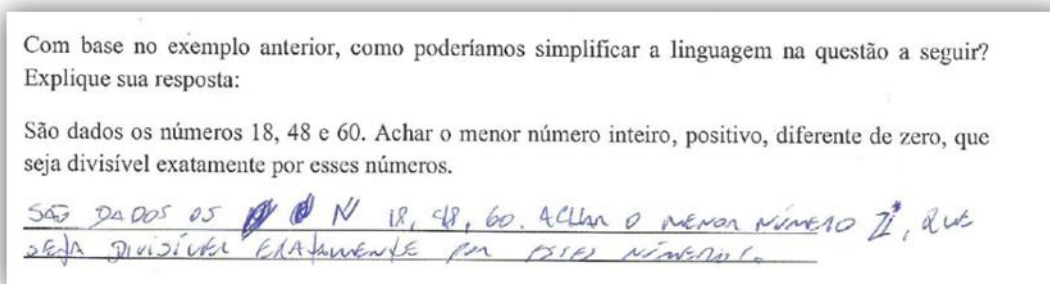 Com base no exemplo anterior, como poderíamos simplificar a linguagem na questão a seguir?
Explique sua resposta:
São dados os números 18, 48 e 60. Achar o menor número inteiro, positivo, diferente de zero, que
seja divisível exatamente por esses números.
SÃO DADOS OS N 18, 48, 60. ACHAR O MENOR NÚMERO Z*, QUE
SEJA DIVISÍVEL EXATAMENTE POR ESSES NÚMEROS.